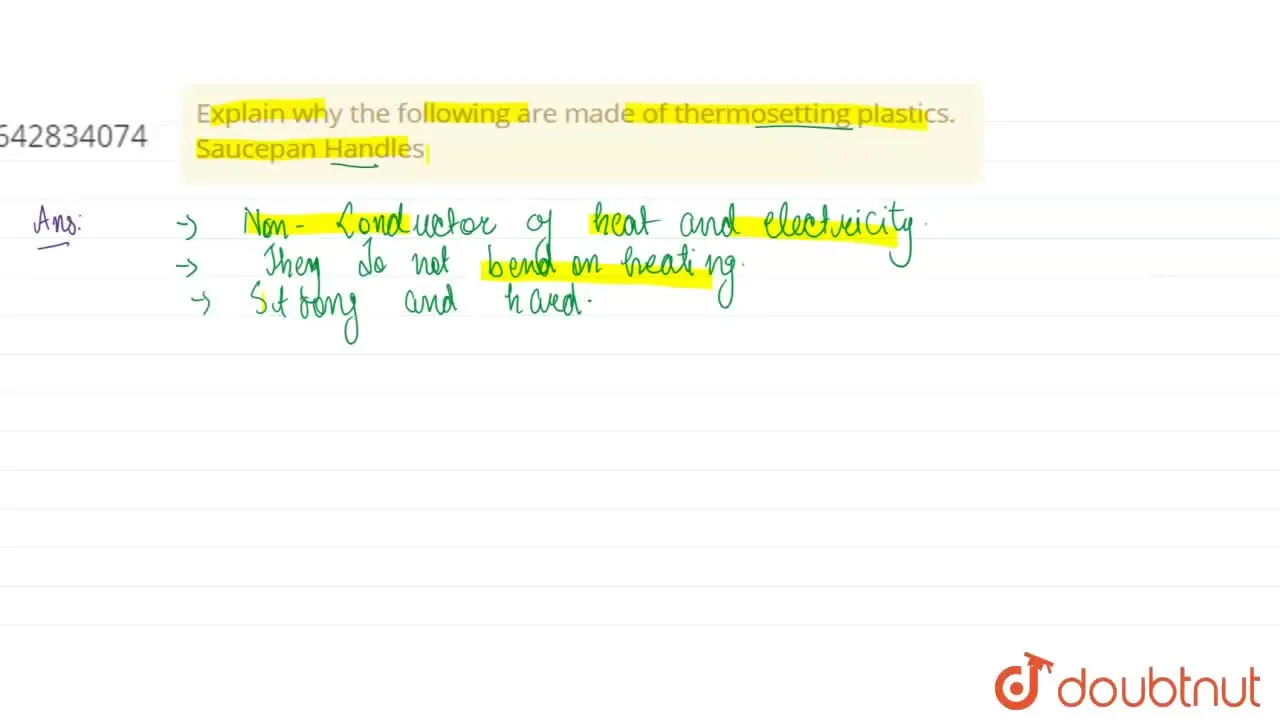 Explain why the following are made of thermosetting plastics.
642834074
Saucepan Handles
Ans:
→ Non-Conductor of heat and electricity.
→ They do not bend on heating.
→ Strong and hard.
doubtnut